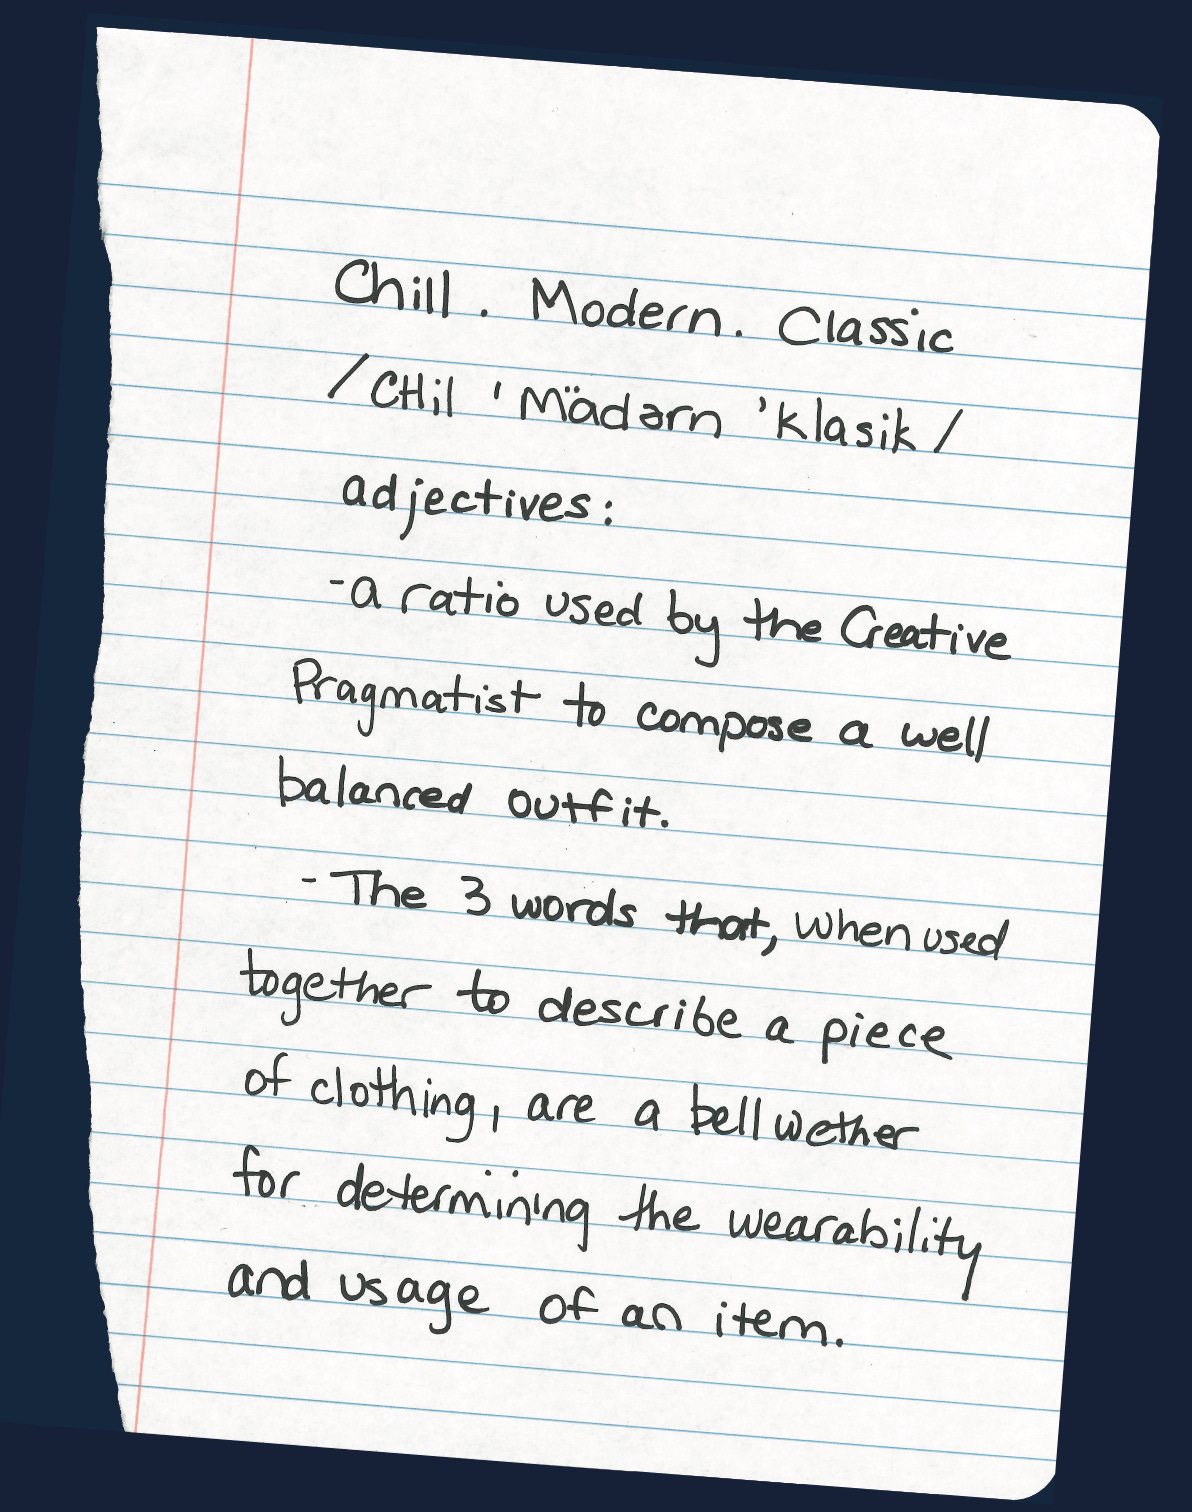 Chill. Modern. Classic
/CHil 'Mädərn 'klasik/
adjectives:
-a ratio used by the Creative
Pragmatist to compose a well
balanced outfit.
-The 3 words that, when used
together to describe a piece
of clothing, are a bellwether
for determining the wearability
and usage of an item.